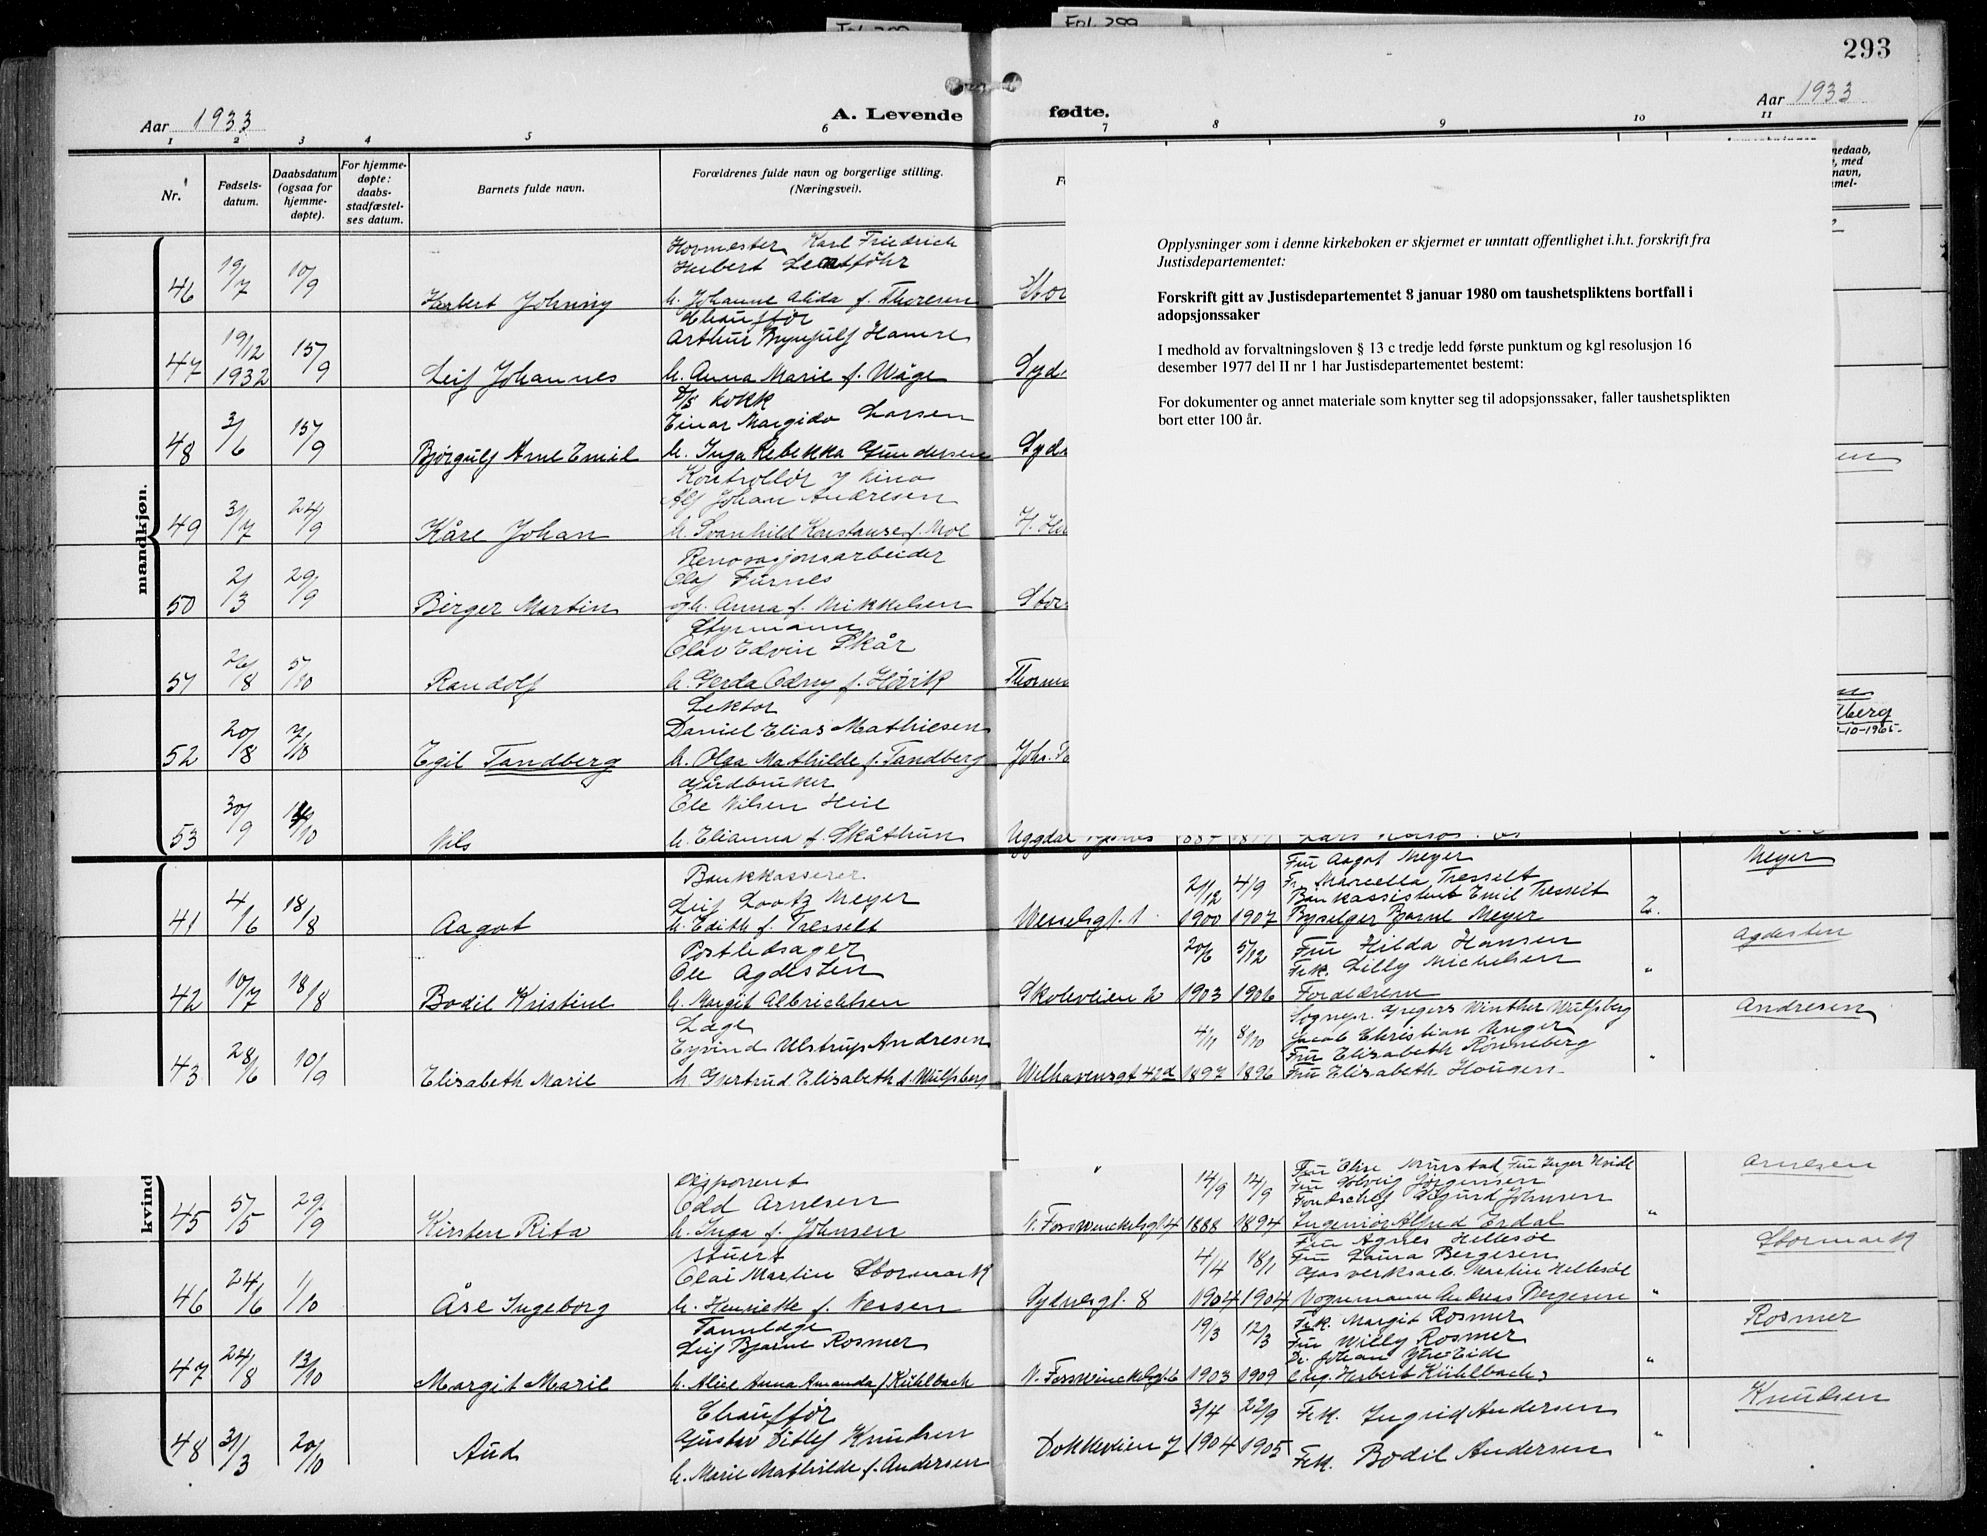 Fol. 299
293
Aar 1933
A. Levende fødte.
Aar 1933
1 2 3 4 5 6 7 8 9 10 11
Nr.
Fødsels-
datum.
Daabsdatum
(ogsaa for
hjemme-
døpte).
For hjemme-
døpte:
daabs-
stadfæstel-
ses datum.
Barnets fulde navn.
Forældrenes fulde navn og borgerlige stilling.
(Næringsvei).
nedaab,
med
navn,
mel-
Opplysninger som i denne kirkeboken er skjermet er unntatt offentlighet i.h.t. forskrift fra
Justisdepartementet:
Forskrift gitt av Justisdepartementet 8 januar 1980 om taushetspliktens bortfall i
adopsjonssaker
I medhold av forvaltningsloven § 13 c tredje ledd første punktum og kgl resolusjon 16
desember 1977 del II nr 1 har Justisdepartementet bestemt:
For dokumenter og annet materiale som knytter seg til adopsjonssaker, faller taushetsplikten
bort etter 100 år.
mandkjøn.
Hovmester Karl Friedrich
Herbert Lentföhr
46 19/7 10/9 Herbert Johnny h. Johanne Alida f. Thoresen Stor
Chauffør
Arthur Brynjulf Hamre
47 19/12 1932 15/9 Leif Johannes h. Anna Marie f. Wåge Syd
D/S kokk
Einar Margido Larsen
48 3/6 15/9 Bjørgulf Arne Emil h. Inga Rebekka Gundersen Syd
Kontrollør v Kino
Alf Johan Andresen
49 3/7 24/9 Kåre Johan h. Svanhild Konstanse f. Moe
Renovasjonsarbeider
Olaf Furnes
50 2/3 29/9 Birger Martin h. Anna f. Mikkelsen Stor
Styrmann
Olav Edvin Skår
51 26/8 5/10 Randolf h. Gerda Odny f. Høvik Thorm
Lektor
Daniel Elias Mathiesen
52 20/8 7/10 Egil Tandberg h. Olga Mathilde f. Tandberg Joh.
dberg
-10-1965.
Gårdbruker
Ole Nilsen Heie
53 30/9 10 Nils h. Elianna f. Skåthun Uggdal Tysnes
kvind
Bankkasserer Fru Aagot Meyer Meyer
Leif Lootz Meyer 21/12 4/9 Fr. Marcella Tresselt
Bankassistent Emil Tresselt
41 4/6 18/8 Aagot h. Edith f. Tresselt Wesselsgt. 1 1900 1907 Byselger Bjarne Meyer
Postledsager Fru Hilda Hansen Agdesten
Ole Agdesten 20/6 5/12 Frk. Lilly Michelsen
42 10/7 18/8 Bodil Kristine h. Margit Albrichtsen Skoleveien 2 1903 1906 Foreldrene "
Læge Sognepr. Gregers Winther Wulfsberg Andresen
Eyvind Ulstrup Andresen 4/11 8/10 Jacob Christian Unger
Fru Elisabeth Rønneberg
43 28/6 10/9 Elisabeth Marie h. Gjertrud Elisabeth f. Wulfsberg Welhavensgt 42d 1897 1896 Fru Elisabeth Hougen "
Disponent Fru Elise Murstad, Fru Inger Hvide Arnesen
Odd Arnesen 14/9 14/9 Fru Solveig Jørgensen
Fondschef Sigurd Johnsen
45 5/5 29/9 Kirsten Rita h. Inga f. Johnsen N. Fosswinckelsgt 4 1888 1894 Ingeniør Alfred Erdal "
Stuert Fru Agnes Hellesøe Stormark
Olai Martin Stormark 4/4 18/1 Fru Laura Bergesen
Gasverksarb. Martin Hellesøe
46 24/6 1/10 Åse Ingeborg h. Henriette f. Nessen Sydnesgt. 8 1904 1904 Vognmann Andreas Bergesen "
Tannlæge Frk. Margit Rosmer Rosmer
Leif Bjarne Rosmer 19/3 12/3 Fru Willy Rosmer
Dr. Johan Ytre-Eide
47 24/8 13/10 Margit Marie h. Alice Anna Amanda f. Kühlbach N. Fosswinckelsgt 6 1903 1909 Herbert Kühlbach "
Chauffør Knudsen
Gustav Ditlef Knudsen 3/4 22/9 Frk. Ingrid Andersen
48 31/3 20/10 Aud h. Marie Mathilde f. Andersen Dokkeveien 7 1904 1905 Frk. Bodil Andersen "